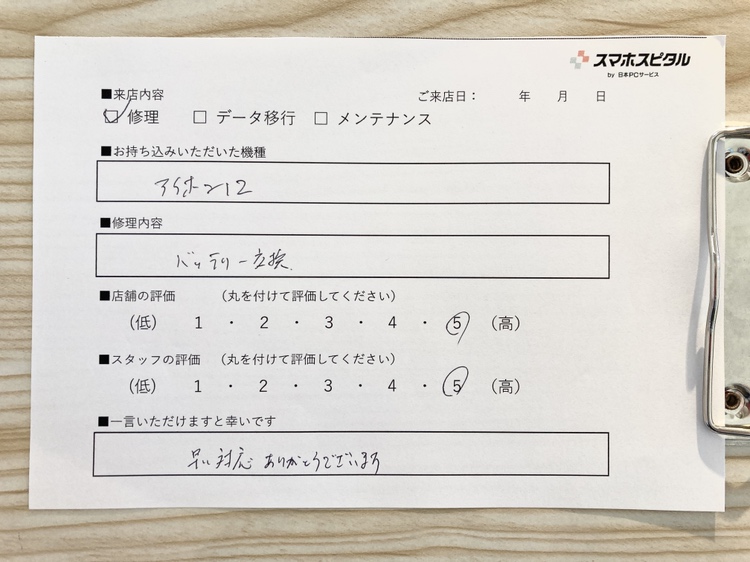 スマホスピタル
by 日本PCサービス
■来店内容
ご来店日： 年 月 日
☑ 修理 □ データ移行 □ メンテナンス
■お持ち込みいただいた機種
アイホーン12
■修理内容
バッテリー交換
■店舗の評価 （丸を付けて評価してください）
（低） 1 ・ 2 ・ 3 ・ 4 ・ 5 （高）
■スタッフの評価 （丸を付けて評価してください）
（低） 1 ・ 2 ・ 3 ・ 4 ・ 5 （高）
■一言いただけますと幸いです
早い対応ありがとうございます